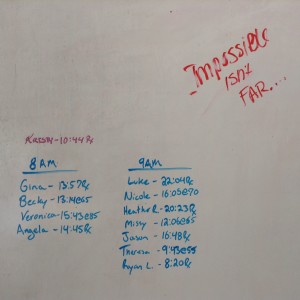 Impossible
isnt
FAR....
Kassy - 10:44 Rx
8 AM
Gina - 13:57 Rx
Becky - 13:14 @65
Veronica - 15:43 @85
Angela - 14:45 Rx
9AM
Luke - 22:04 Rx
Nicole - 16:05 @70
Heather R. - 20:23 Rx
Missy - 12:06 @65
Jason - 16:48 Rx
Theresa - 9:43 @55
Bryan L. - 8:20 Rx